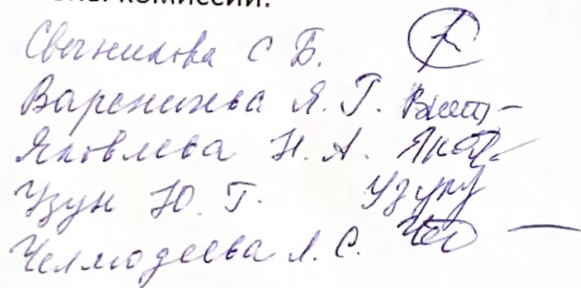 комиссии:
Свечникова С Б.
Вареничева Я. Г.
Яковлева Н. А.
Узун Ю. Г.
Челмодеева Л. С.